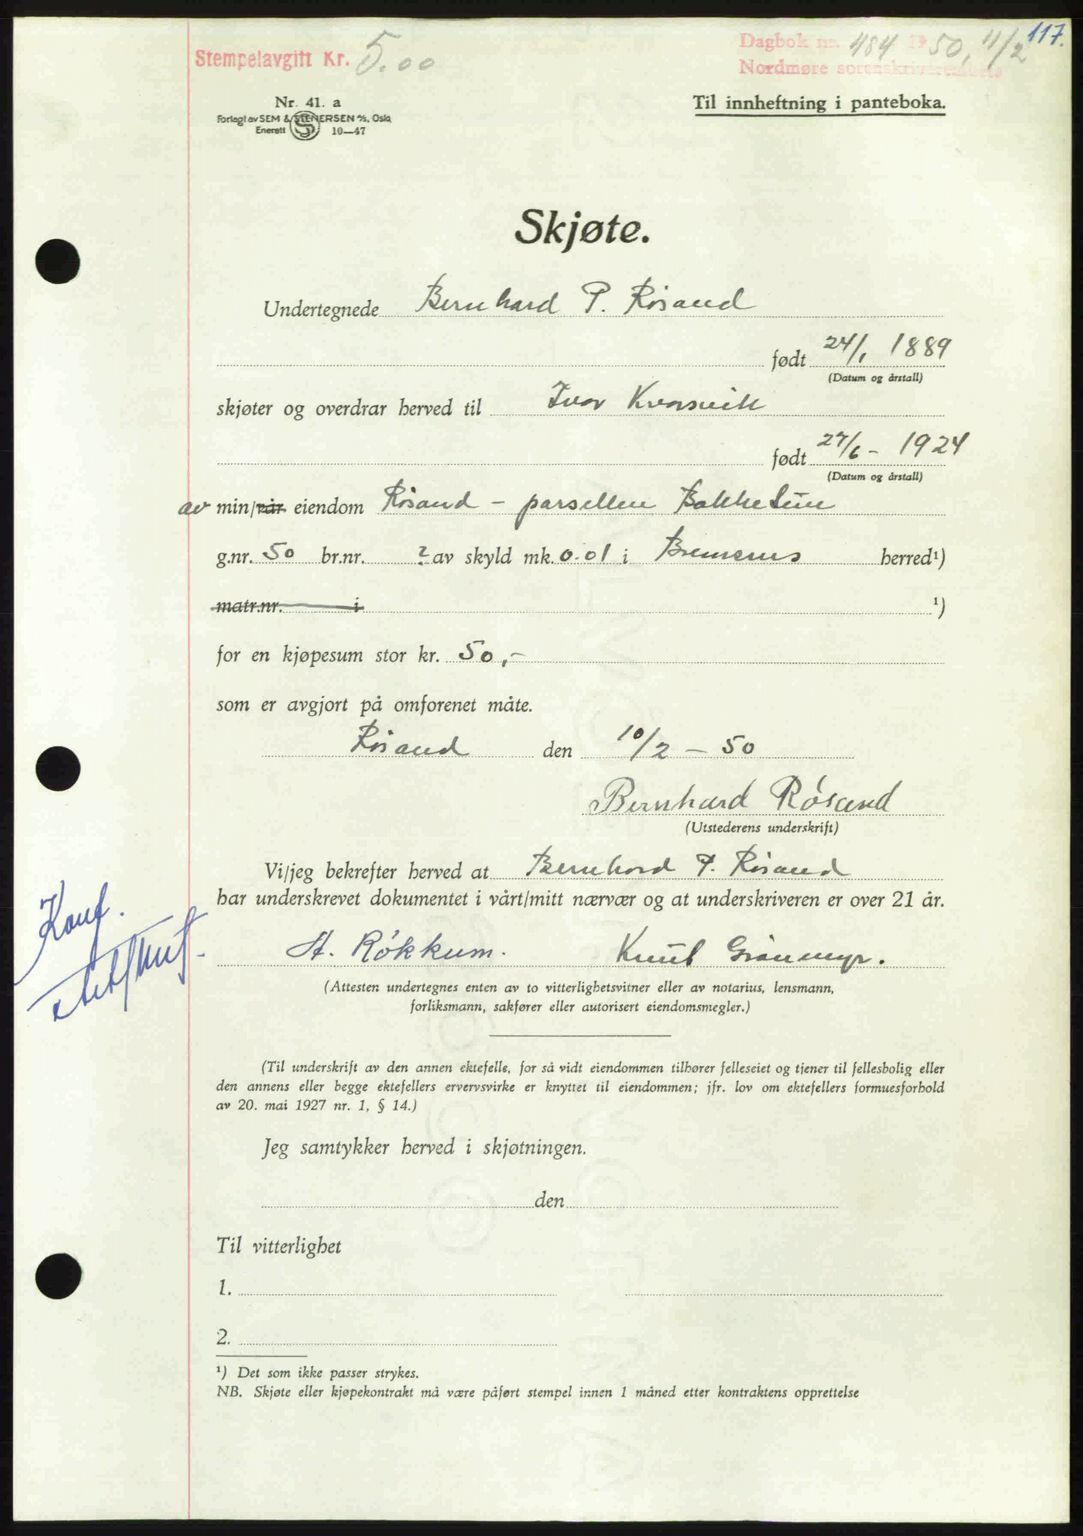 117.
Stempelavgift Kr. 5.00
Dagbok nr. 484 1950, 11/2
Nordmøre sorenskriverembete
Nr. 41. a
Forlagt av SEM & STENERSEN A/S, Oslo
Enerett S 10—47
Til innheftning i panteboka.
Skjøte.
Undertegnede Bernhard P. Røsand
født 24/1 1889
(Datum og årstall)
skjøter og overdrar herved til Ivar Kvarsvik
født 27/6 - 1924
(Datum og årstall)
av min/vår eiendom Røsand - parsellen Bakketun
g.nr. 50 br.nr. ? av skyld mk. 0.01 i Bremsnes herred¹)
matr.nr. i ¹)
for en kjøpesum stor kr. 50,-
som er avgjort på omforenet måte.
Røsand den 10/2 - 50
Bernhard Røsand
(Utstederens underskrift)
Vi/jeg bekrefter herved at Bernhard P. Røsand
har underskrevet dokumentet i vårt/mitt nærvær og at underskriveren er over 21 år.
Konf.
H. Røkkum. Knut Grønmyr.
(Attesten undertegnes enten av to vitterlighetsvitner eller av notarius, lensmann,
forliksmann, sakfører eller autorisert eiendomsmegler.)
(Til underskrift av den annen ektefelle, for så vidt eiendommen tilhører felleseiet og tjener til fellesbolig eller
den annens eller begge ektefellers ervervsvirke er knyttet til eiendommen; jfr. lov om ektefellers formuesforhold
av 20. mai 1927 nr. 1, § 14.)
Jeg samtykker herved i skjøtningen.
den
Til vitterlighet
1.
2.
¹) Det som ikke passer strykes.
NB. Skjøte eller kjøpekontrakt må være påført stempel innen 1 måned etter kontraktens opprettelse